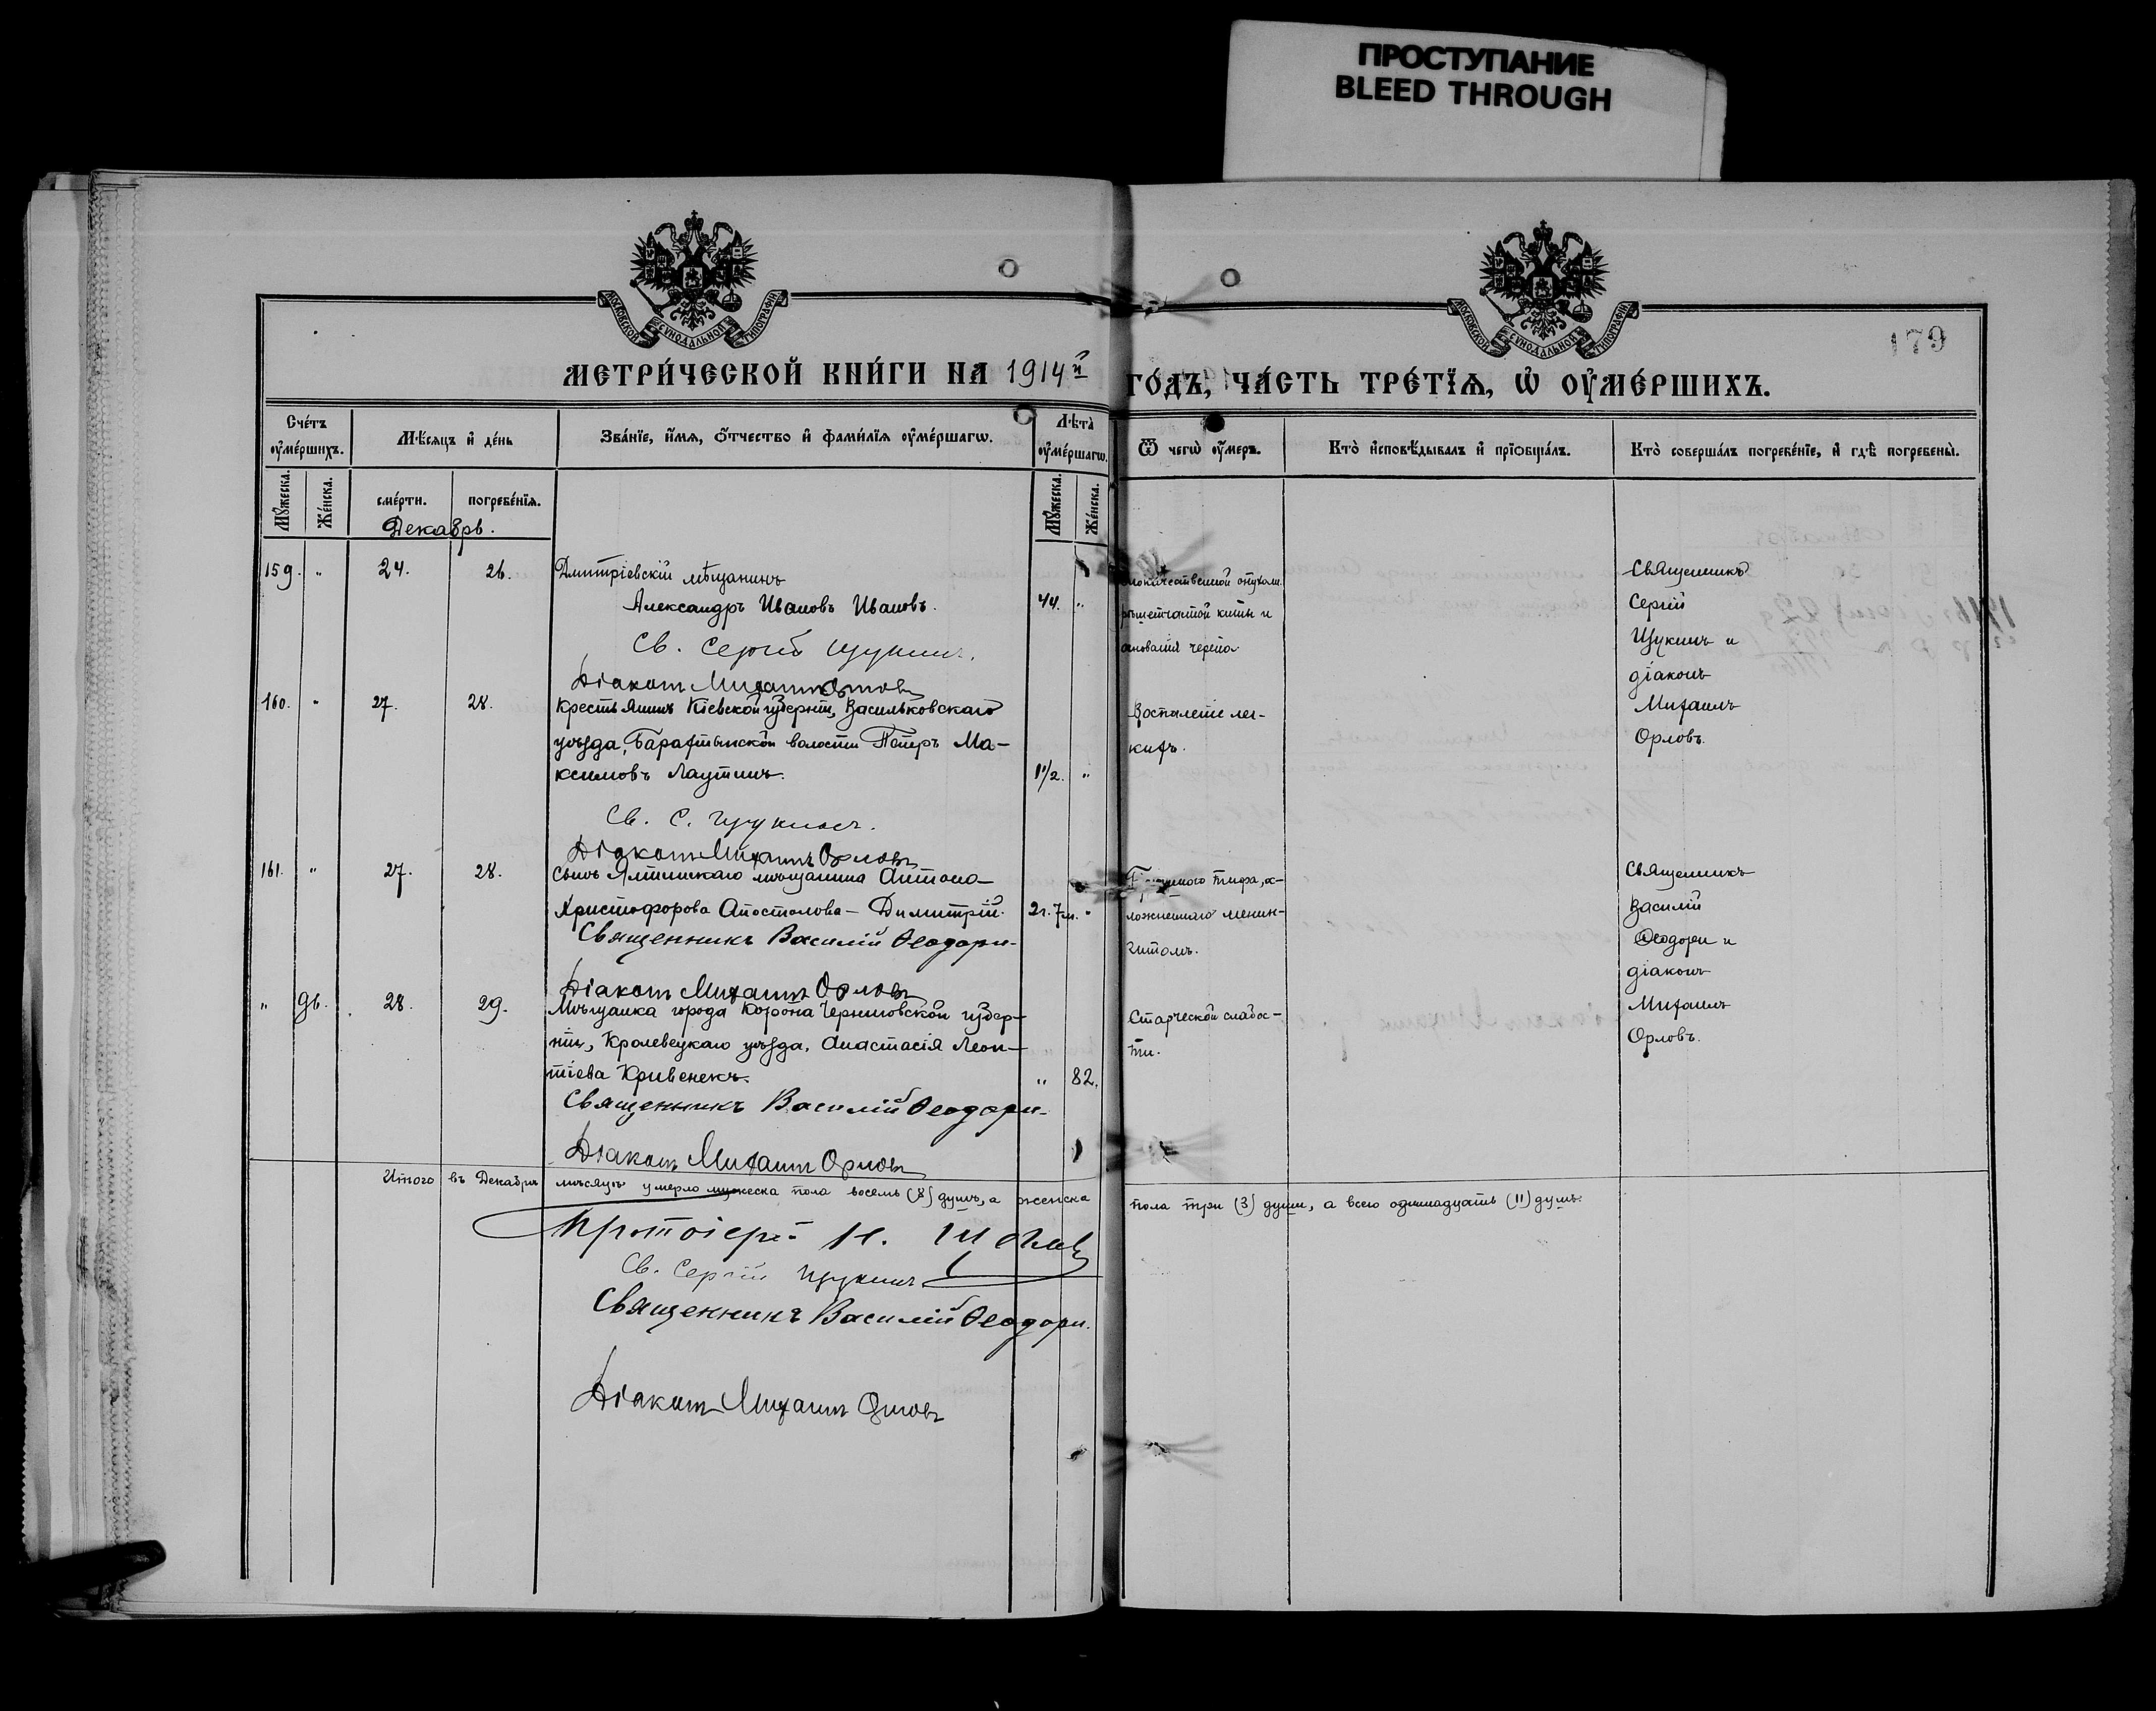 ПРОСТУПАНИЕ
BLEED THROUGH
МОСКОВСКОЙ СѴНОДАЛЬНОЙ ТИПОГРАФІИ
МОСКОВСКОЙ СѴНОДАЛЬНОЙ ТИПОГРАФІИ
179
МЕТРИ́ЧЕСКОЙ КНИ́ГИ НА 1914й ГО́ДЪ, ЧА́СТЬ ТРЕ́ТЇѦ, Ѡ҆ ОУ҆МЕ́РШИХЪ.
Сче́тъ оу҆ме́ршихъ.
Мѣ́сѧцъ и҆ де́нь
Зва́нїе, и҆́мѧ, ѻ҆́тчество и҆ фами́лїѧ оу҆ме́ршагѡ.
Лѣ́та оу҆ме́ршагѡ.
Ѿ чегѡ̀ оу҆́меръ.
Кто̀ и҆сповѣ́дывалъ и҆ прїѡбща́лъ.
Кто̀ соверша́лъ погребе́нїе, и҆ гдѣ̀ погребены̀.
Мꙋ́жеска. Же́нска. сме́рти. погребе́нїѧ. Мꙋ́жеска. Же́нска.
Декабрь.
159. " 24. 26. Дмитріевскій мѣщанинъ
Александръ Ивановъ Ивановъ. 44. "
Св. Сергій Щукинъ.
Діаконъ Михаилъ Орловъ
злокачественной опухоли
рѣшетчатой кости и
основанія черепа
Священникъ
Сергій
Щукинъ и
діаконъ
Михаилъ
Орловъ.
160. " 27. 28. Крестьянинъ Кіевской губерніи, Васильковскаго
уѣзда, Барахтянской волости Петръ Ма-
ксимовъ Лаутинъ. 1 1/2. "
Св. С. Щукинъ.
Діаконъ Михаилъ Орловъ
Воспаленіе лег-
кихъ.
161. " 27. 28. Сынъ Ялтинскаго мѣщанина Антона
Христофорова Апостолова - Димитрій. 2г. 7м. "
Священникъ Василій Ѳеодори
Діаконъ Михаилъ Орловъ
Брюшного тифа, ос-
ложненнаго менин-
гитомъ.
Священникъ
Василій
Ѳеодори и
діаконъ
Михаилъ
Орловъ.
" 96. 28. 29. Мѣщанка города Коропа Черниговской губер-
ніи, Кролевецкаго уѣзда, Анастасія Леон-
тіева Кривенекъ. " 82.
Священникъ Василій Ѳеодори
Діаконъ Михаилъ Орловъ
Старческой слабос-
ти.
Итого въ Декабрѣ мѣсяцѣ умерло мужеска пола восемь (8) душъ, а женска пола три (3) души, а всего одиннадцать (11) душъ.
Протоіерей
Св. Сергій Щукинъ
Священникъ Василій Ѳеодори.
Діаконъ Михаилъ Орловъ